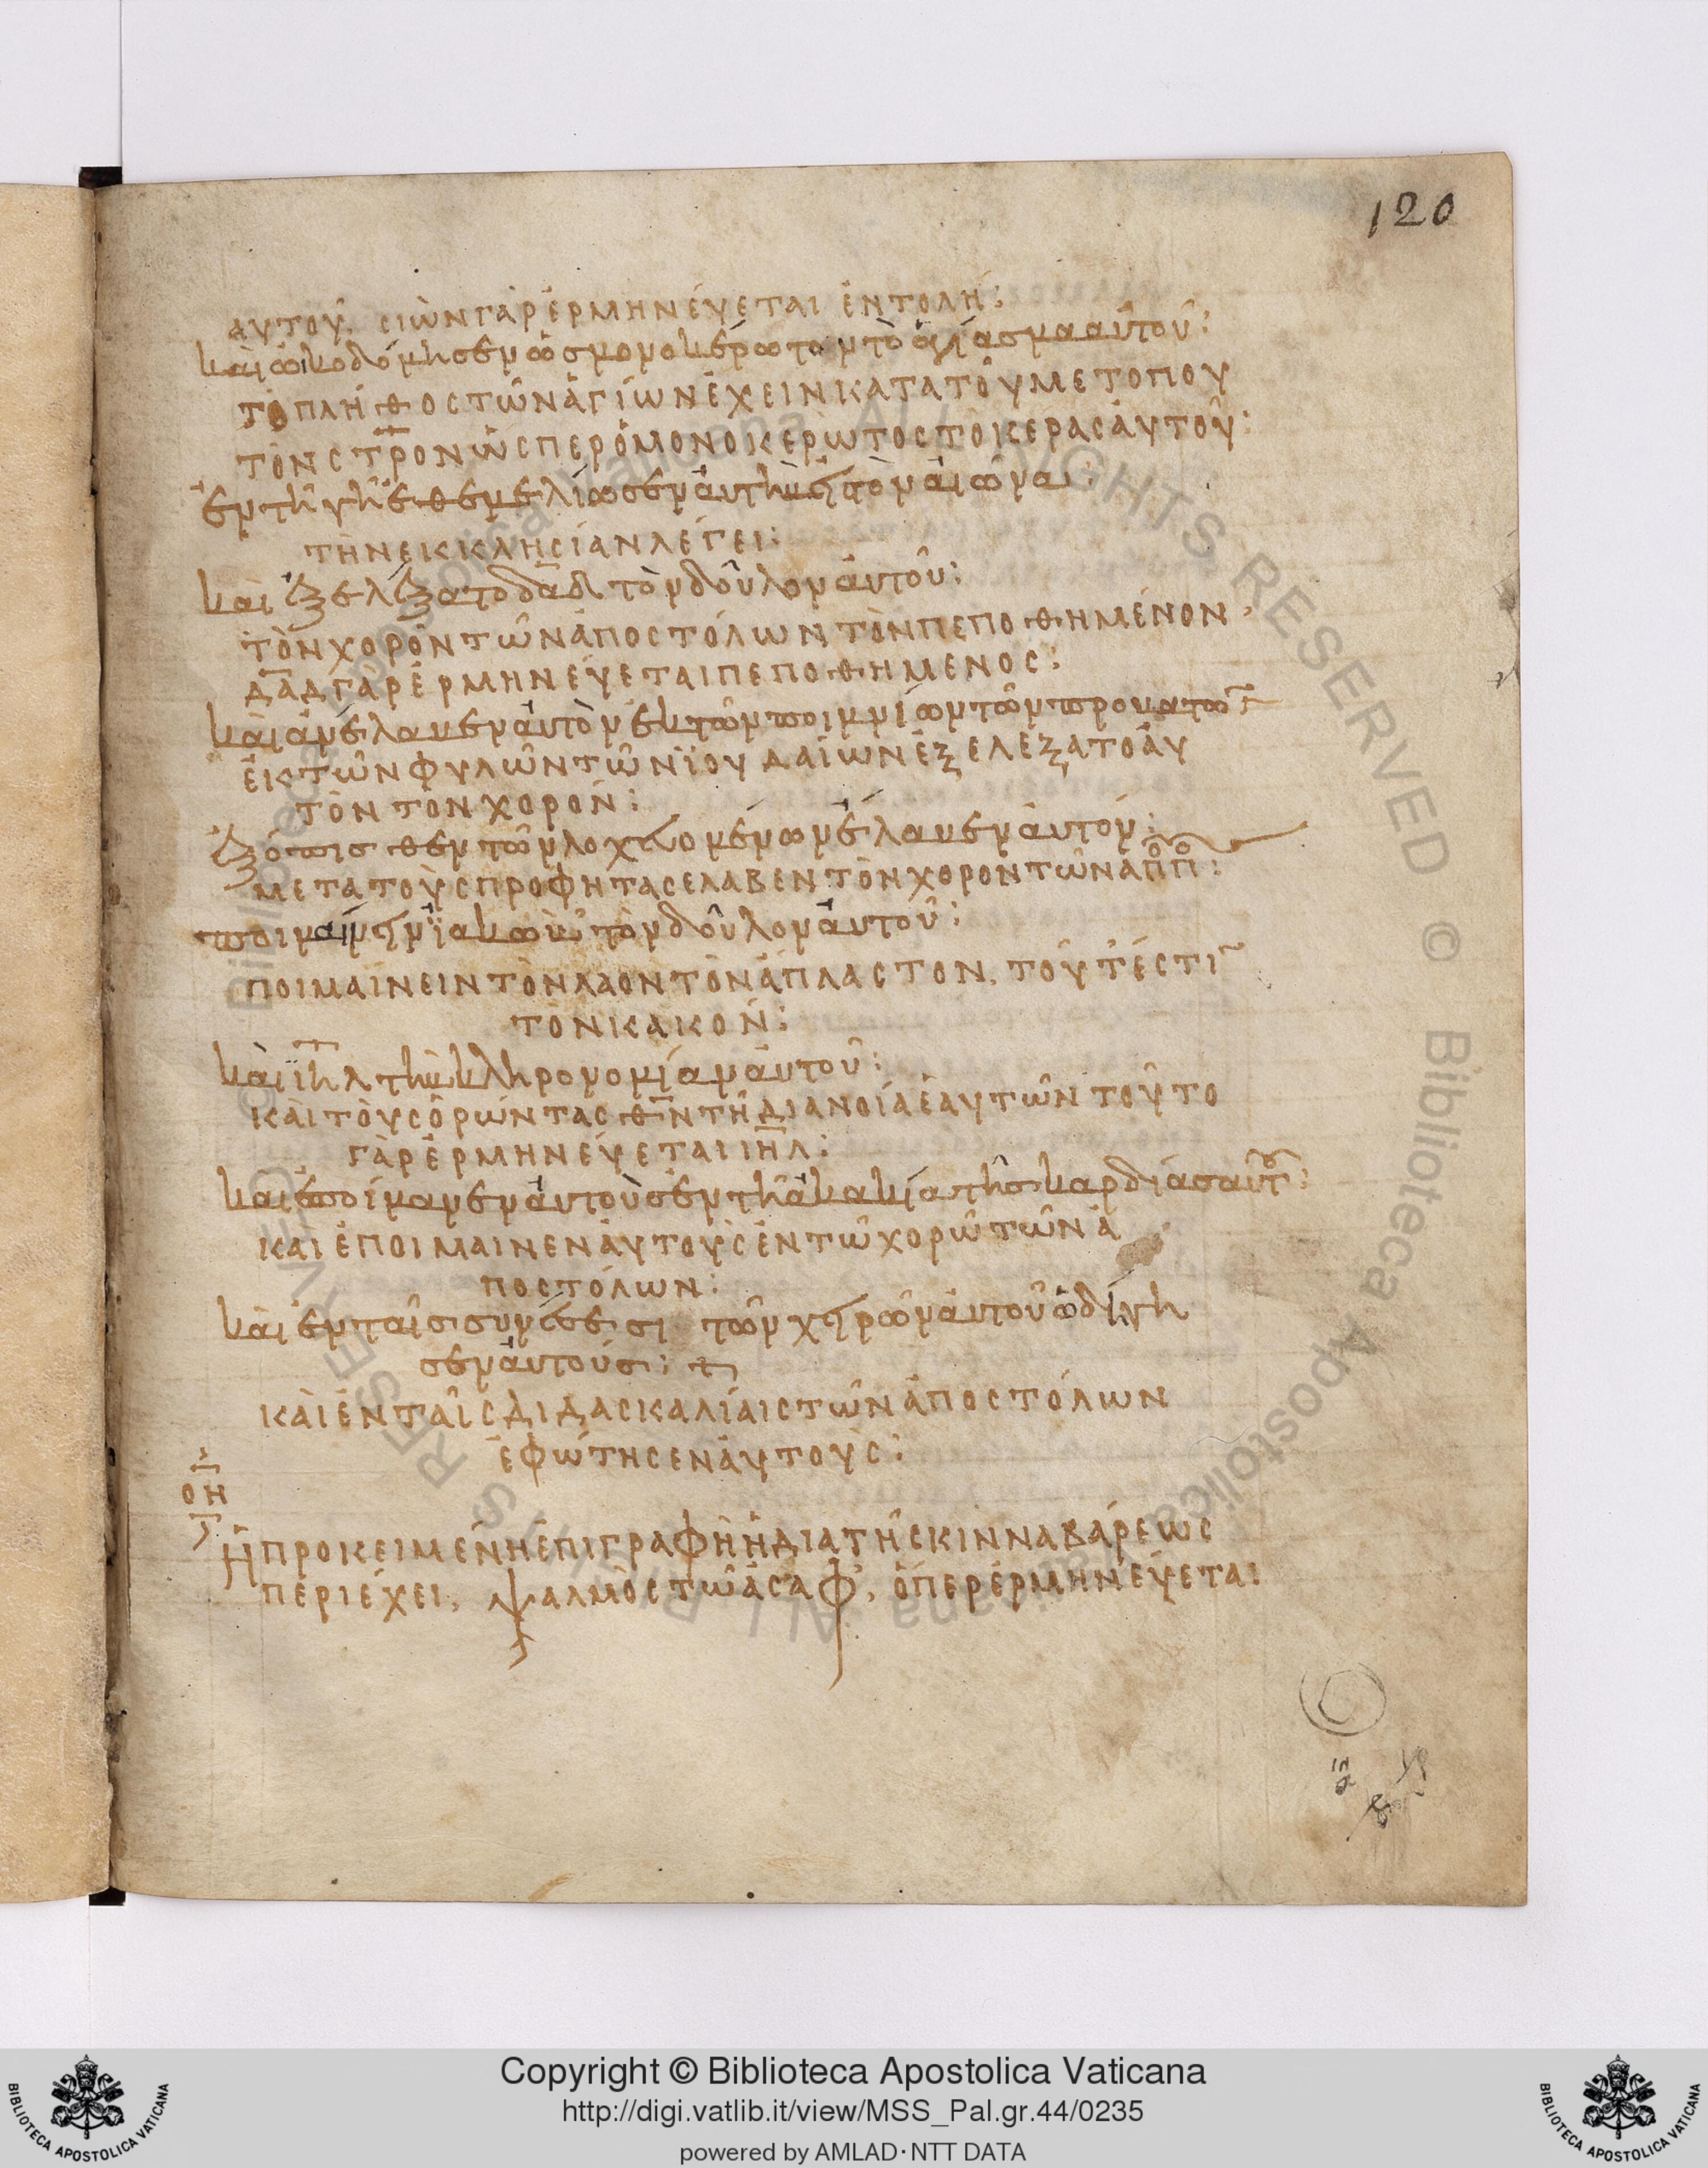 120
αυτοῦ, σιὼν γὰρ ἑρμηνέυεται ἐντολή:
και ὠικοδόμησεν ὡσ μονοκέρωτον τὸ ἁγίασμα αὐτοῦ:
τὸ πλῆθος τῶν ἁγίων ἔχειν κατα τοῦ μετοπου
τὸν στρον ὥσπερ ὁ μονοκερωτος το κερας ἀυτοῦ:
ἐν τῆ γῆ ἐθεμελίωσεν ἀυτὴν εἰς τὸν ἀιῶνα:
τὴν εκκλησίαν λέγει:
και ἐξελέξατο δαδ τὸν δοῦλον ἀυτοῦ:
τὸν χορὸν τῶν ἀποστόλων τὸν πεποθημένον,
δαδ γὰρ ἑρμηνεύεται πεποθημενος:
και ἀνέλαβεν ἀυτὸν ἐκ τῶν ποιμνίων τῶν προβατω
ἐκ τῶν φυλῶν τῶν ϊουδαίων ἐξελέξατο ἀυ
τὸν τὸν χορόν:
ἐξόπισθεν τῶν λοχευομένων ἔλαβεν ἀυτόν:
μετα τοὺς προφήτας ελαβεν τὸν χορον τῶν αππ:
ποιμαίνειν ϊακὼβ τὸν δοῦλον ἀυτοῦ:
ποιμαίνειν τὸν λαον τὸν ἄπλαστον, τοῦτ ἐστι
τὸν κακον:
και ϊηλ τὴν κληρονομίαν ἀυτοῦ:
και τοὺς ὁρώντας θν τῆ διανοία ἑαυτῶν τοῦτο
γὰρ ἑρμηνεύεται ιηλ:
και ἐποίμανεν ἀυτοὺσ ἐν τῆ ἀκακία τῆσ καρδίασ αυτ:
και ἐποιμαινεν ἀυτοὺς ἐν τῶ χορῶ τῶν ἀ
ποστόλων:
και ἐν ταῖσ συνέσεσι τῶν χειρῶν ἀυτοῦ ὡδίγη
σεν ἀυτούσ:
και ἐν ταῖς διδασκαλίαις τῶν ἀποστόλων
ἐφώτησεν ἀυτοὺς:
οη
ἡ προκειμένη ἐπιγραφὴ ἡ δια τῆς κινναβάρεως
περιέχει, ψαλμὸς τῶ ἀσὰφ, ὅπερ ἑρμηνέυεται
Copyright © Biblioteca Apostolica Vaticana
http://digi.vatlib.it/view/MSS_Pal.gr.44/0235
powered by AMLAD·NTT DATA
BIBLIOTECA APOSTOLICA VATICANA
BIBLIOTECA APOSTOLICA VATICANA